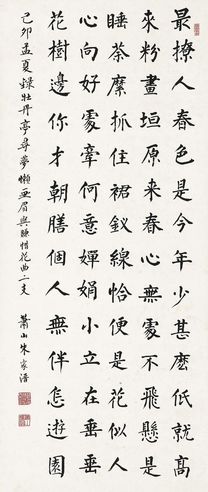 最撩人春色是今年少甚麼低就高
來粉畫垣原來春心無處不飛懸是
睡荼縻抓住裙釵線恰便是花似人
心向好處牽何意嬋娟小立在垂垂
花樹邊你才朝膳個人無伴怎遊園
己卯孟夏錄牡丹亭尋夢懶画眉與賺惜花曲二支
蕭山朱家溍